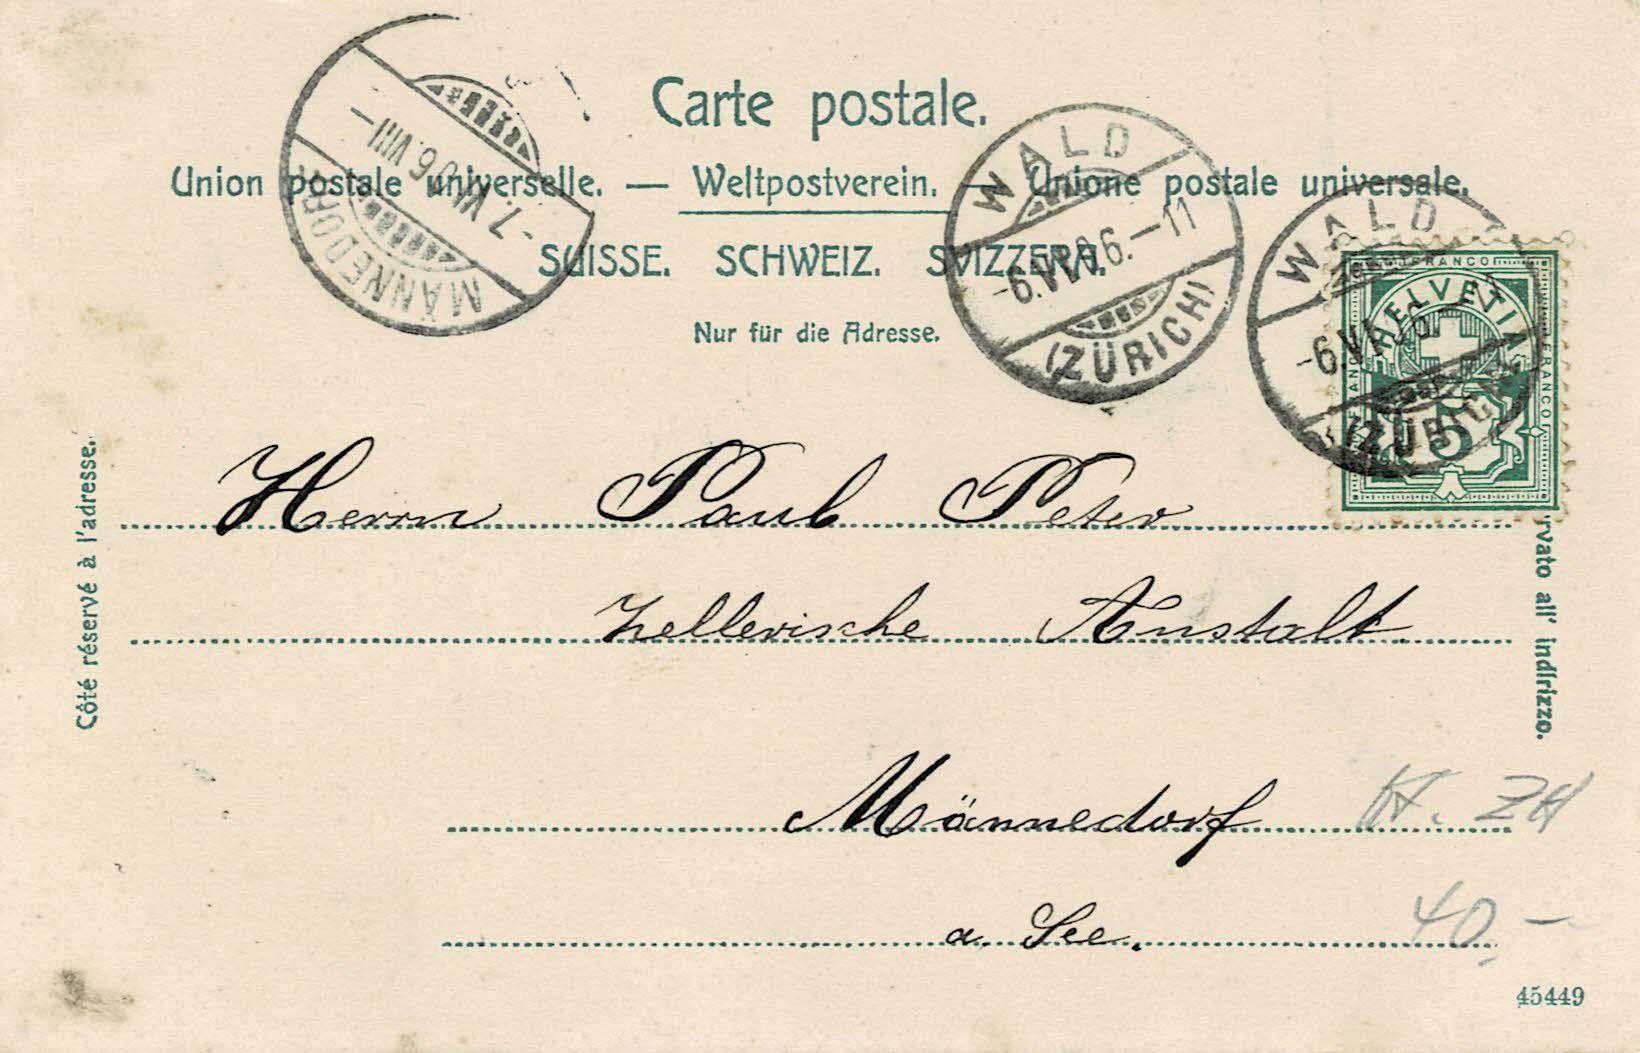 Carte postale.
Union postale universelle. — Weltpostverein. — Unione postale universale.
SUISSE. SCHWEIZ. SVIZZERA.
Nur für die Adresse.
MÄNNEDORF
-7.VI.06.VIII-
WALD
-6.VI.06.-11
(ZÜRICH)
WALD
-6.VI.06.
(ZÜRICH)
FRANCO
HELVETIA
FRANCO
FRANCO
5
Côté réservé à l'adresse.
rvato all' indirizzo.
Herrn Paul Peter
Zellerische Anstalt.
Männedorf
a. See.
Kt. ZH
40.-
45449